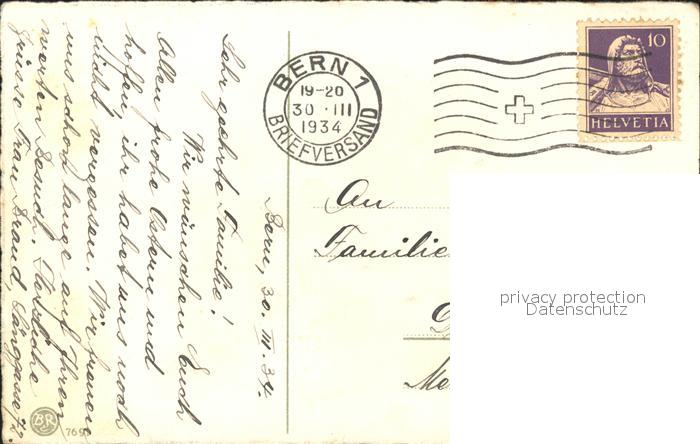 Bern, 30. III. 34.
Sehr geehrte Familie!
Wir wünschen Euch
Allen frohe Ostern und
hoffen, ihr habet uns noch
nicht vergessen. Wir freuen
uns schon lange auf Ihren
werten Besuch. Herzliche
Grüsse Frau Brand, Länggasse 72
BERN 1
19-20
30.III
1934
BRIEFVERSAND
10
HELVETIA
An
Familie
privacy protection
Datenschutz
BR